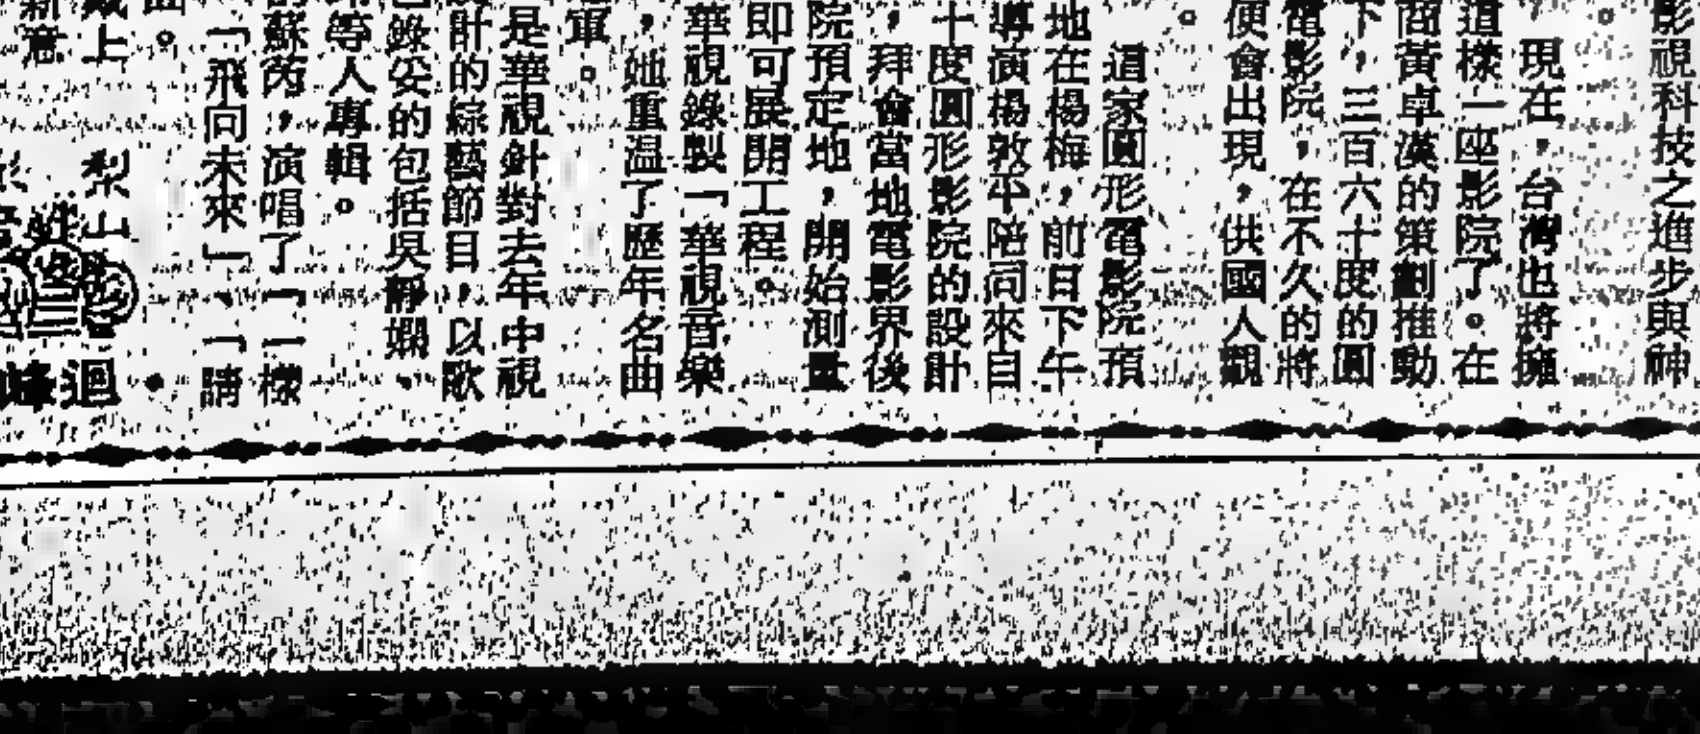 影視科技之進步與神
。
，現在，台灣也將擁
道樣一座影院了。在
商黃卓漢的策劃推動
下，三百六十度的圓
電影院，在不久的將
便會出現，供國人觀
。
這家圓形電影院預
地在楊梅，前日下午
導演楊敦平陪同來自
十度圓形影院的設計
，拜會當地電影界後
院預定地，開始測量
即可展開工程。
華視錄製「華視音樂
，她重温了歷年名曲
軍。
是華視針對去年中視
設計的綜藝節目，以歌
已錄妥的包括吳靜嫻、
等人專輯。
的蘇芮，演唱了「一樣
「飛向未來」、「請
曲。
上 梨山
新意
迴峰